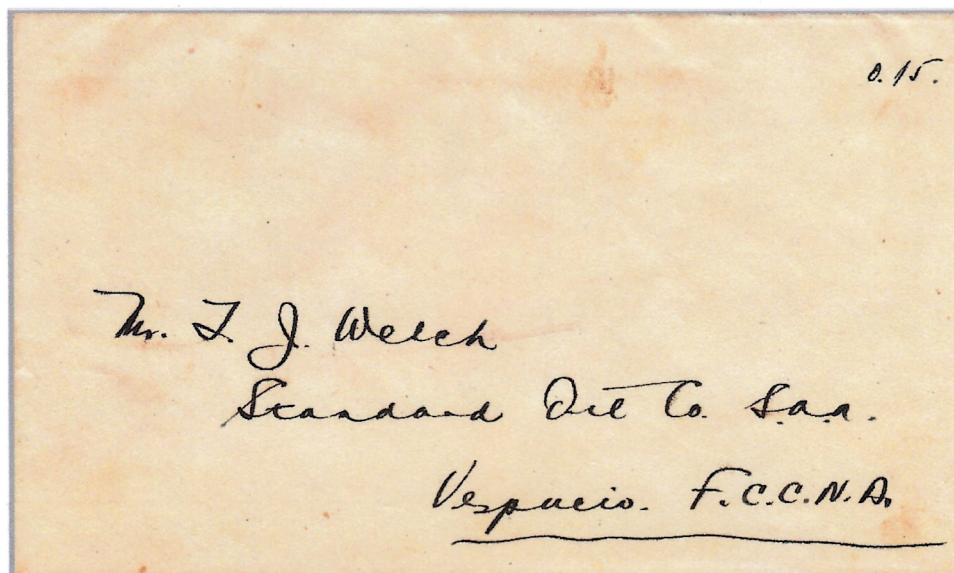 0.15.
Mr. T. J. Welch
Standard Oil Co. S.a.a.
Vespucio. F.C.C.N.A.